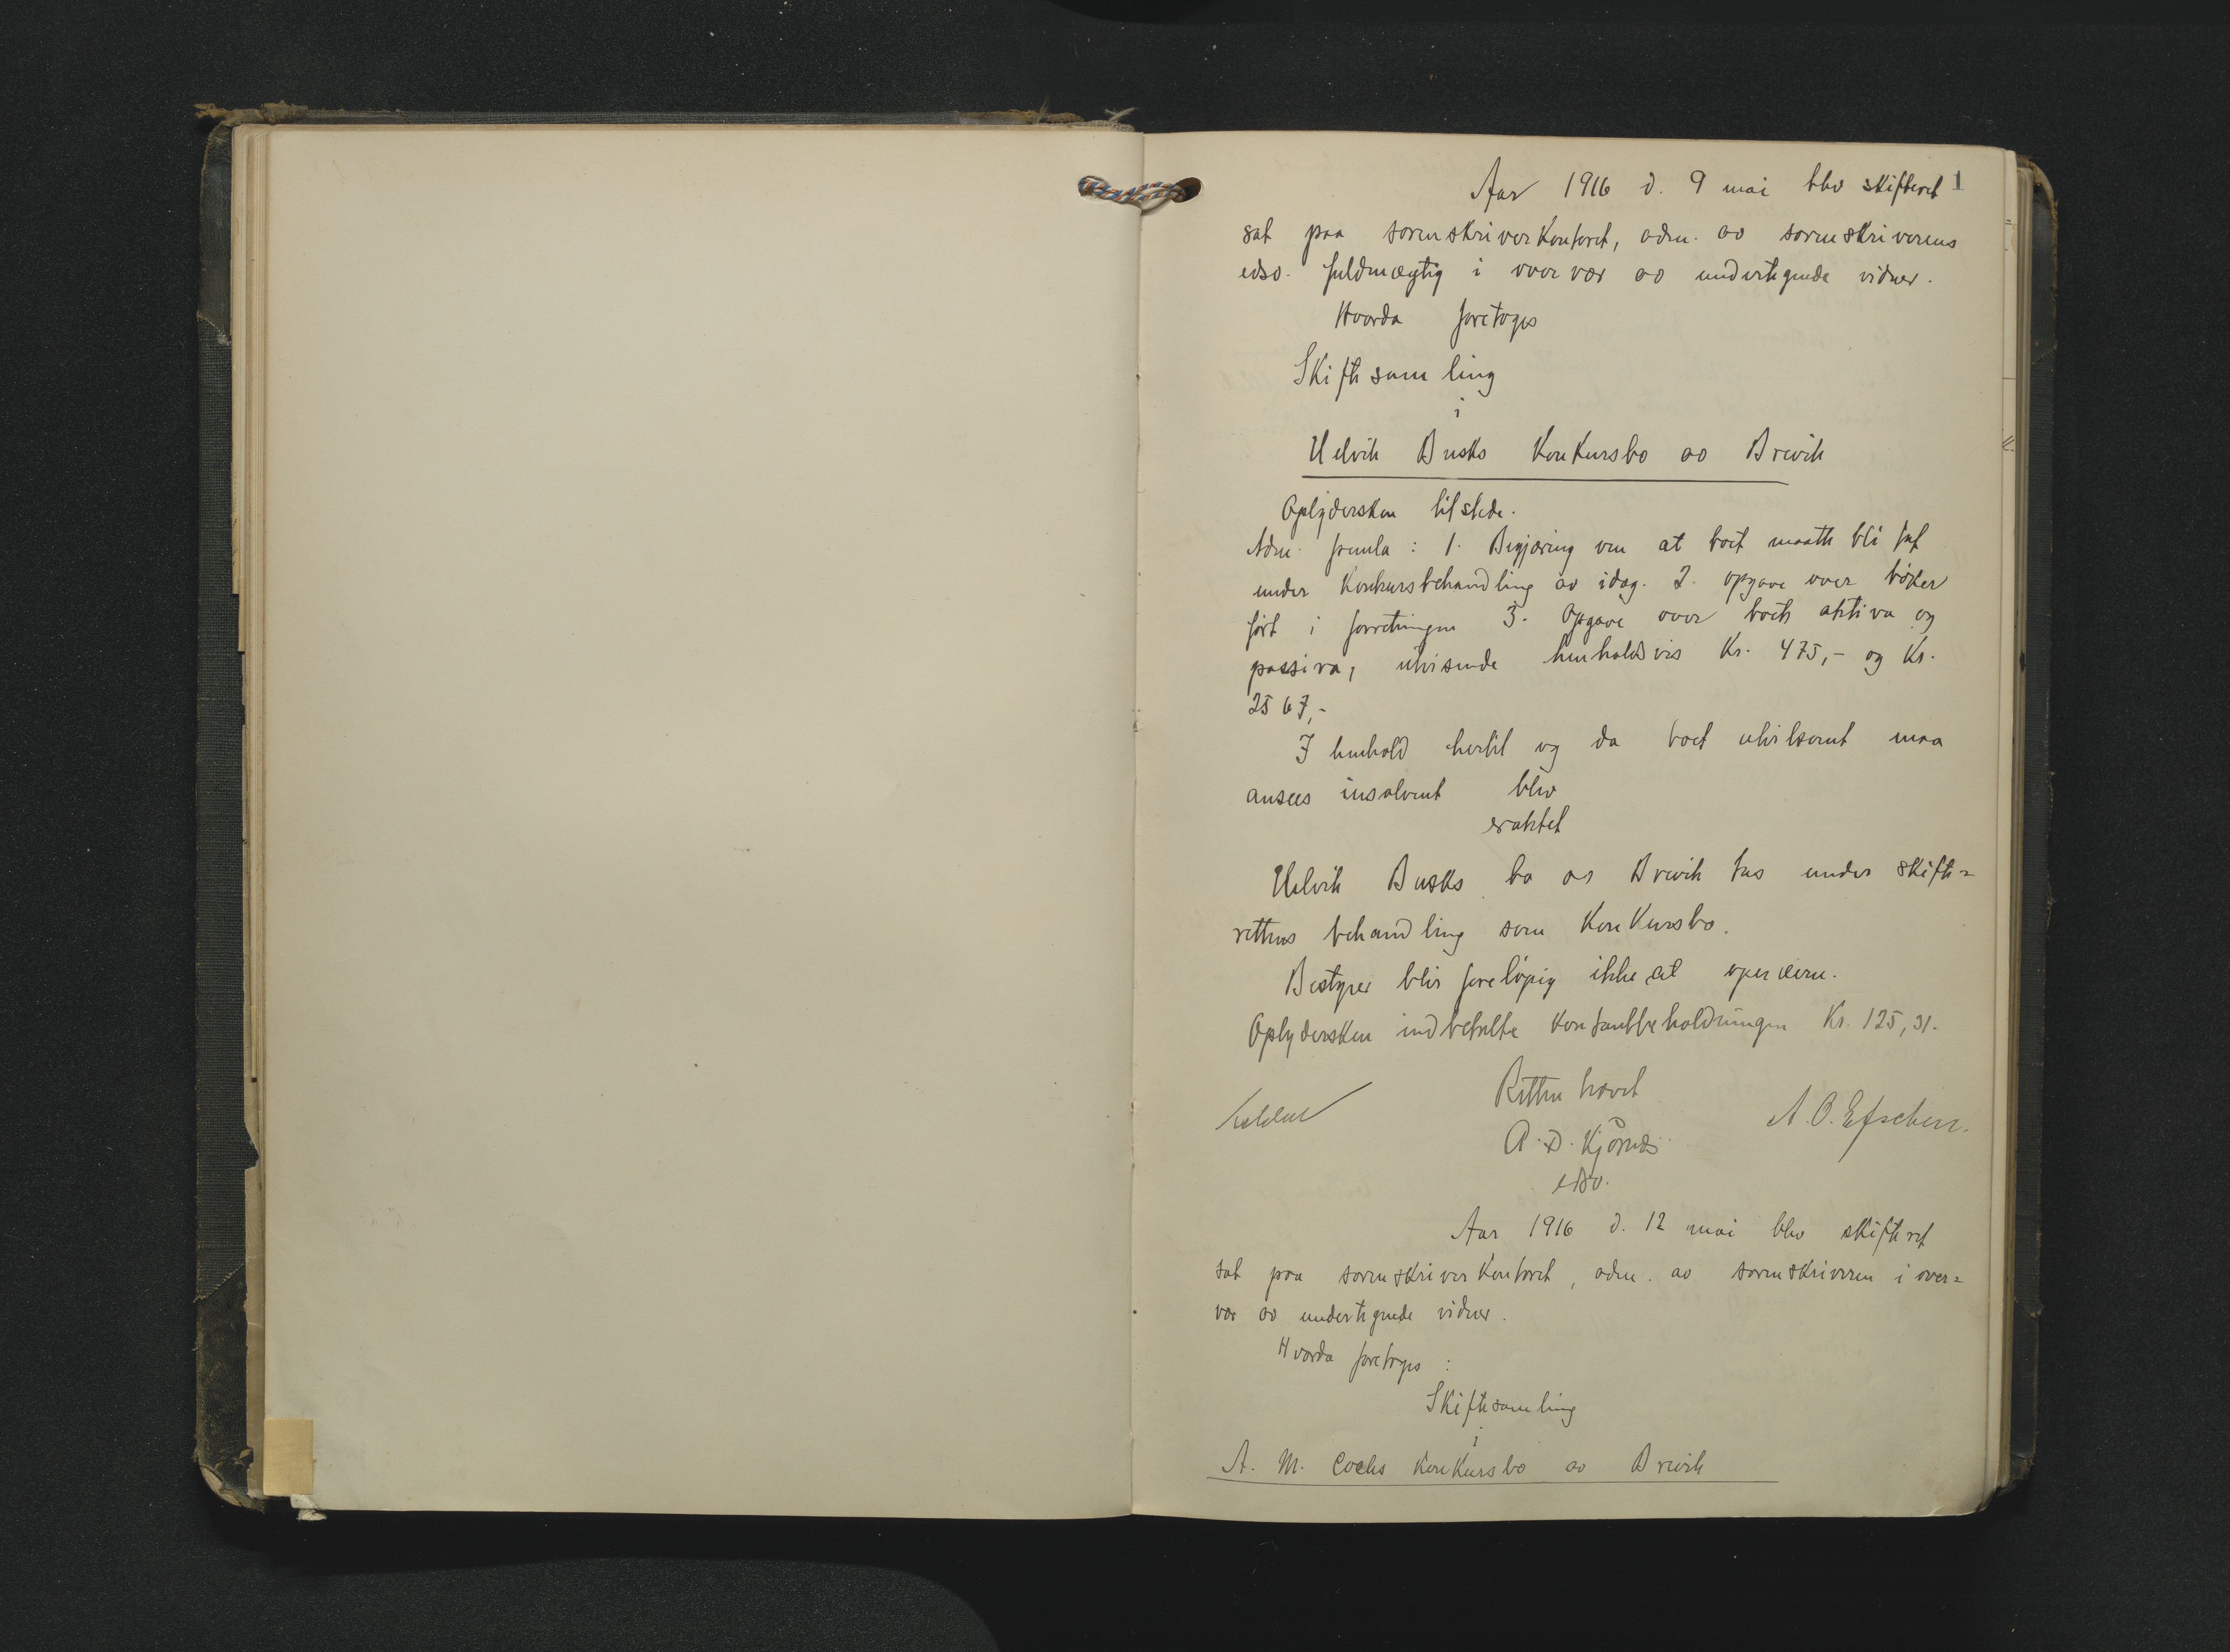 Aar 1916 d. 9 mai blev skifteret 1
sat paa sorenskriverkontoret, adm. av sorenskriverens
edsv. fuldmægtig i overvær av undertegnede vidner.
Hvorda foretoges
Skiftesamling
i
Busks konkursbo av Brevik
Oplydersken tilstede.
Adm. fremla: 1. Begjæring om at boet maatte bli tat
under konkursbehandling av idag. 2. opgave over bøker
ført i forretningen 3. Opgave over boets aktiva og
passiva, utvisende henholdsvis Kr. 475,- og Kr.
2567,-
I henhold hertil og da boet utvilsomt maa
ansees insolvent blev
eraktet
Busks bo av Brevik tas under skifte=
rettens behandling som konkursbo.
Bestyrer blir foreløpig ikke at opnævne.
Oplydersken indbetalte kontantbeholdningen Kr. 125,31.
Retten hævet
A. D. Kjörnæs
edsv.
Aar 1916 d. 12 mai blev skifteret
sat paa sorenskriverkontoret, adm. av sorenskriveren i over=
vær av undertegnede vidner.
Hvorda foretoges:
Skiftesamling
i
A. M. Cocks konkursbo av Brevik